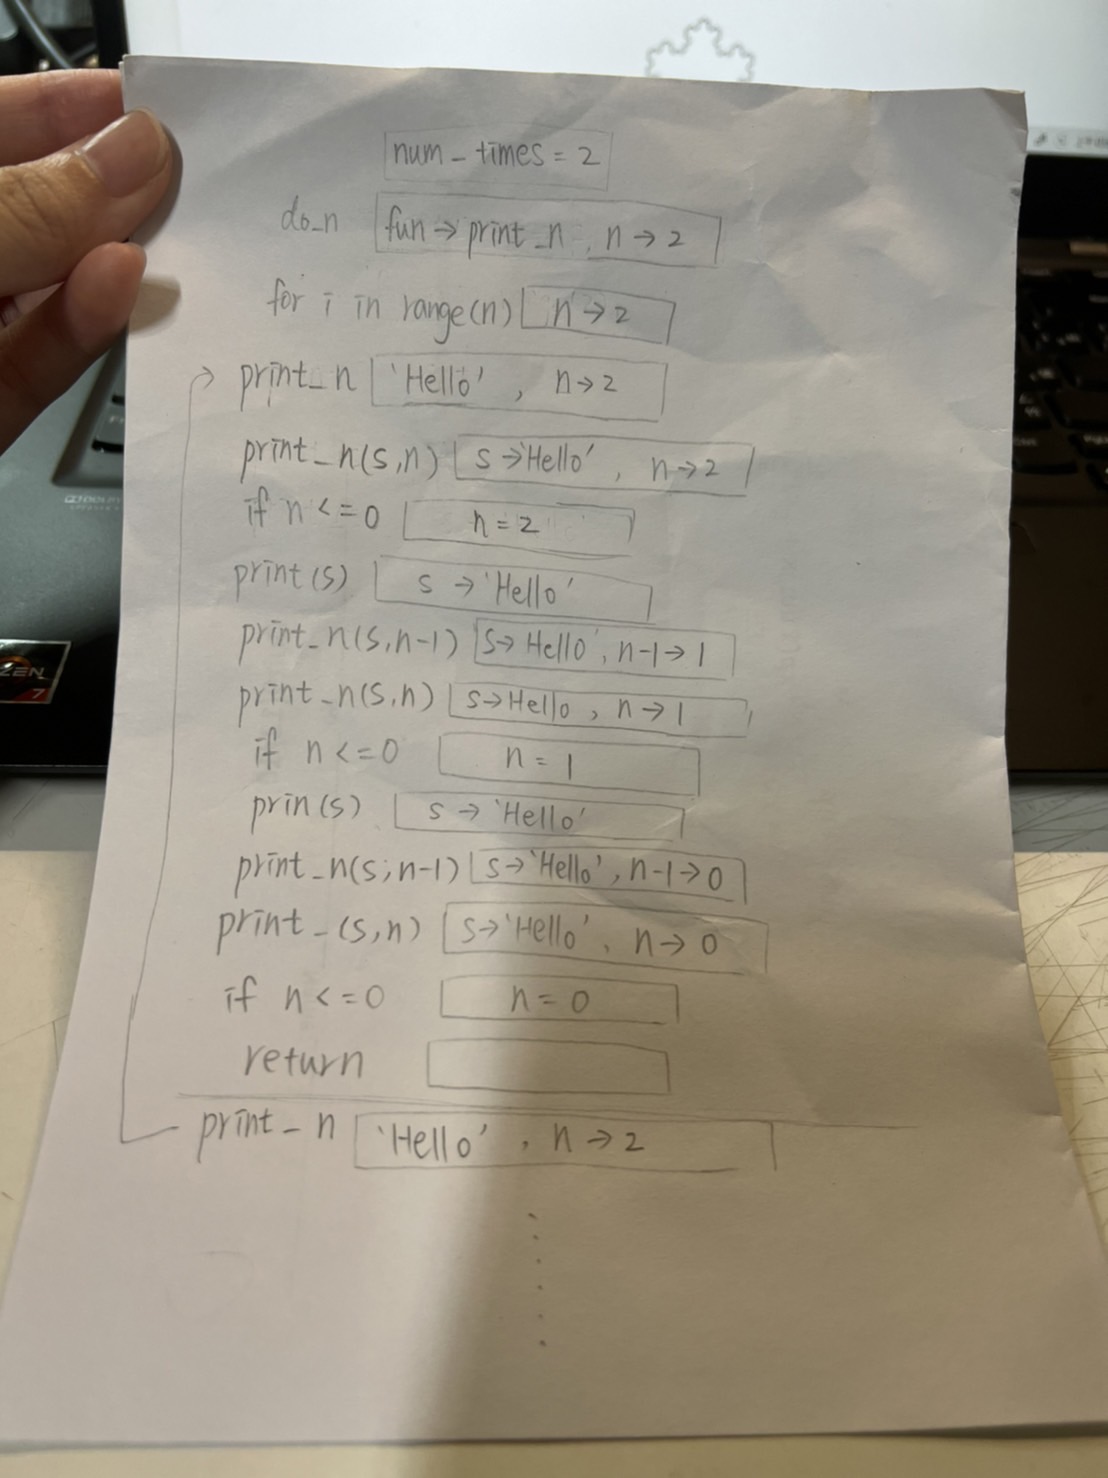 num_times = 2
do_n fun → print_n, n → 2
for i in range(n) n → 2
print_n 'Hello', n → 2
print_n(s,n) s → 'Hello', n → 2
if n <= 0 n = 2
print(s) s → 'Hello'
print_n(s,n-1) s → Hello', n-1 → 1
print_n(s,n) s → Hello, n → 1
if n <= 0 n = 1
prin(s) s → 'Hello'
print_n(s,n-1) s → 'Hello', n-1 → 0
print_(s,n) s → 'Hello', n → 0
if n <= 0 n = 0
return
print_n 'Hello', n → 2
ZEN
7